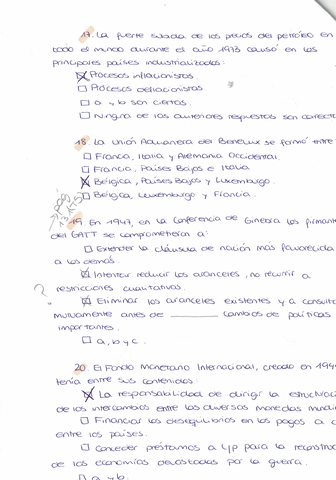 17. La fuerte subida de los precios del petróleo en
todo el mundo durante el año 1973 causó en los
principales países industrializados:
Procesos inflacionistas.
Procesos deflacionistas.
a y b son ciertas.
Ninguna de las anteriores respuestas son correcta
18. La Unión Aduanera del Benelux se formó entre
Francia, Italia y Alemania Occidental.
Francia, Países Bajos e Italia.
Bélgica, Países Bajos y Luxemburgo.
Bélgica, Luxemburgo y Francia.
pág
19. En 1947, en la Conferencia de Ginebra los firmante
del GATT se comprometieron a:
Extender la cláusula de nación más favorecida
a los demás.
Intentar reducir los aranceles, no recurrir a
? restricciones cuantitativas.
Eliminar los aranceles existentes y a consulta
mutuamente antes de ________ cambios de políticas
importantes.
a, b y c.
20. El Fondo Monetario Internacional, creado en 194
tenía entre sus contenidos:
La responsabilidad de dirigir la
de los intercambios entre las diversas monedas mundi
Financiar los desequilibrios en los pagos a c
entre los países.
Conceder préstamos a l/p para la reconstruc
de las economías devastadas por la guerra.
a y b.